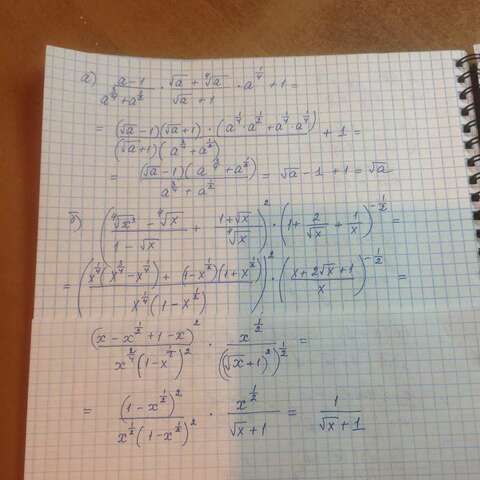 а) \frac{a-1}{a^{\frac{3}{4}}+a^{\frac{1}{2}}} \cdot \frac{\sqrt{a}+\sqrt[4]{a}}{\sqrt{a}+1} \cdot a^{\frac{1}{4}}+1=
= \frac{(\sqrt{a}-1)(\sqrt{a}+1) \cdot (a^{\frac{1}{4}} \cdot a^{\frac{1}{2}}+a^{\frac{1}{4}} \cdot a^{\frac{1}{4}})}{(\sqrt{a}+1)(a^{\frac{3}{4}}+a^{\frac{1}{2}})} + 1 =
= \frac{(\sqrt{a}-1)(a^{\frac{3}{4}}+a^{\frac{1}{2}})}{a^{\frac{3}{4}}+a^{\frac{1}{2}}} = \sqrt{a}-1+1=\sqrt{a}
б) \left(\frac{\sqrt[4]{x^3}-\sqrt[4]{x}}{1-\sqrt{x}} + \frac{1+\sqrt{x}}{\sqrt[4]{x}}\right)^2 \cdot \left(1+\frac{2}{\sqrt{x}}+\frac{1}{x}\right)^{-\frac{1}{2}} =
= \left(\frac{x^{\frac{1}{4}}(x^{\frac{3}{4}}-x^{\frac{1}{4}})+(1-x^{\frac{1}{2}})(1+x^{\frac{1}{2}})}{x^{\frac{1}{4}}(1-x^{\frac{1}{2}})}\right)^2 \cdot \left(\frac{x+2\sqrt{x}+1}{x}\right)^{-\frac{1}{2}} =
\frac{(x-x^{\frac{1}{2}}+1-x)^2}{x^{\frac{2}{4}}(1-x^{\frac{1}{2}})^2} \cdot \frac{x^{\frac{1}{2}}}{((\sqrt{x}+1)^2)^{\frac{1}{2}}} =
= \frac{(1-x^{\frac{1}{2}})^2}{x^{\frac{1}{2}}(1-x^{\frac{1}{2}})^2} \cdot \frac{x^{\frac{1}{2}}}{\sqrt{x}+1} = \frac{1}{\sqrt{x}+1}